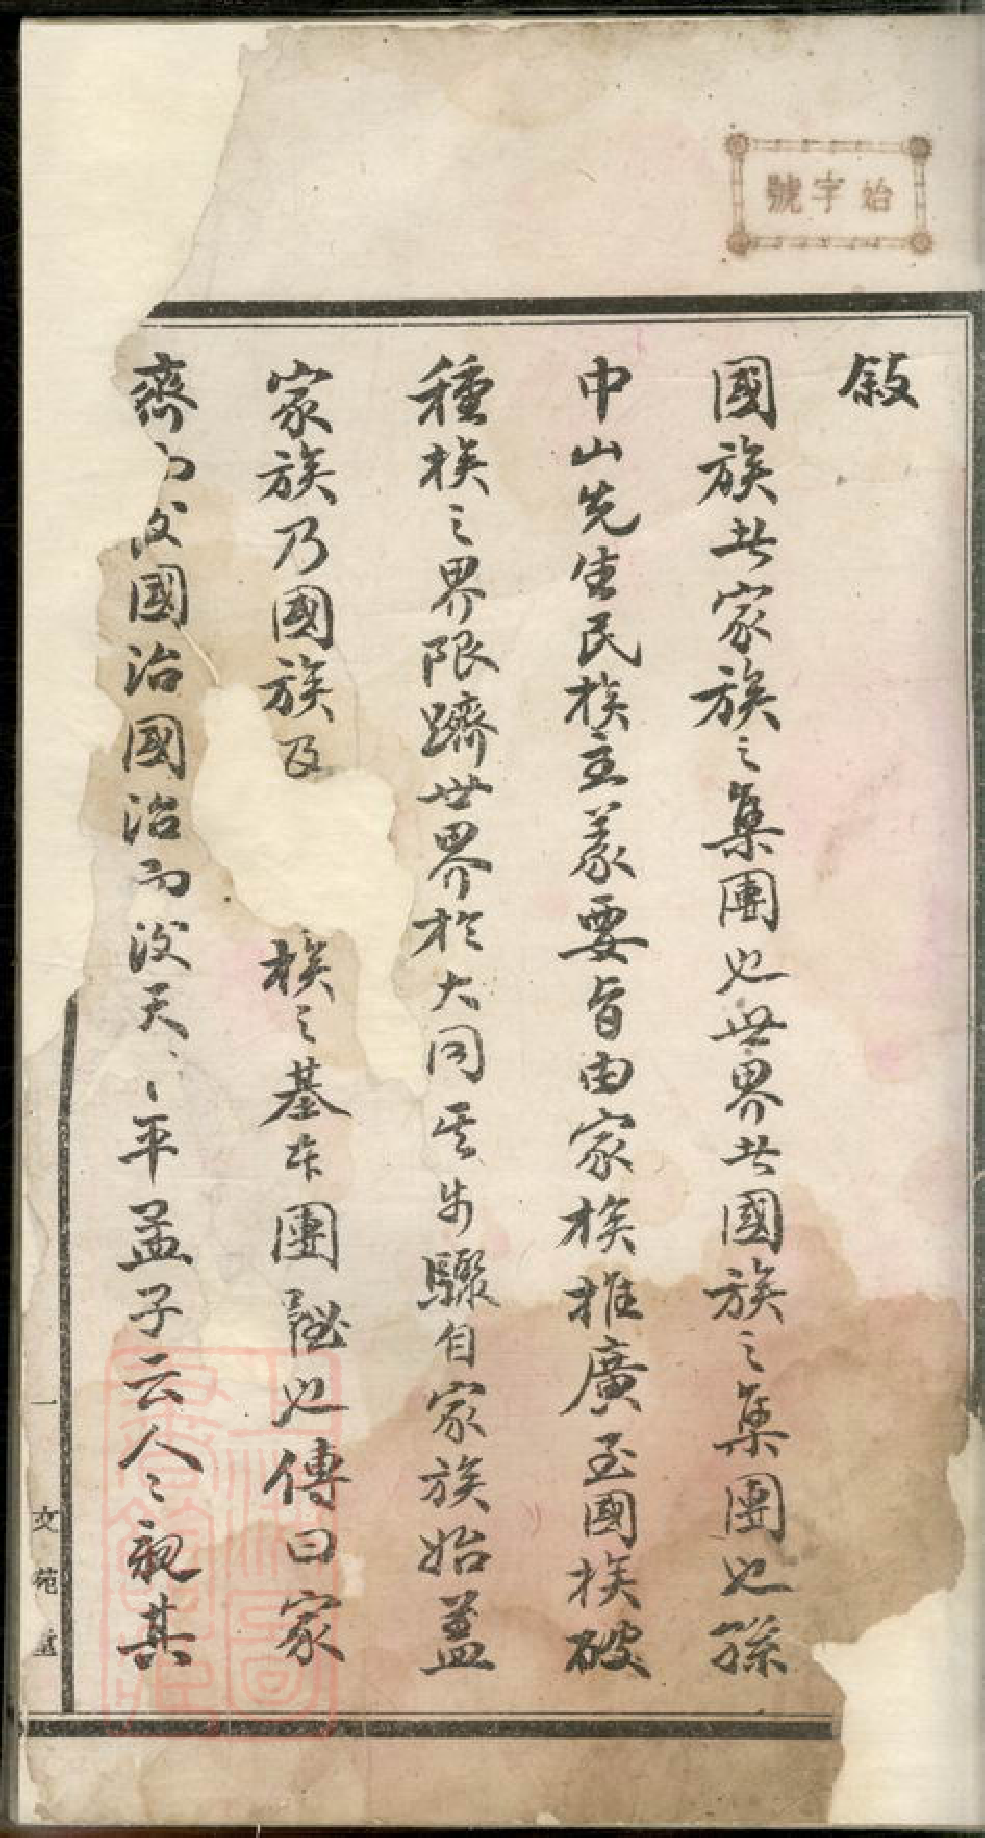 始字號
敘
國族者家族之集團也世界者國族之集團也孫
中山先生民族主義要旨由家族推廣至國族破
種族之界限躋世界於大同其步驟自家族始蓋
家族乃國族及族之基本團體也傳曰家
齊而后國治國治而后天下平孟子云人人親其
一
文苑